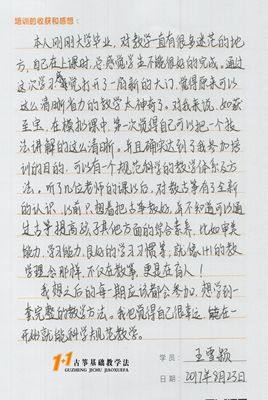 培训的收获和感想:
本人刚刚大学毕业,对教学一直有很多迷茫的地
方,自己在上课时,总感觉学生不能很好的完成,通过
这次学习感觉打开了一扇新的大门,觉得原来可以
这么清晰有力的教学太神奇了。对我来说,如获
至宝,在模拟课中,第一次觉得自己可以把一个技
法讲解的这么清晰。并且确实达到了我来参加培
训的目的,可以有一个规范科学的教学体系及方
法。听了几位老师的课以后,对教古筝有了全新
的认识,以前只想着把古筝教好,并不知道可以通
过古筝提高孩子其他方面的综合素养,比如审美
能力,学习能力,良好的学习习惯等,就像1+1的教
学理念那样,不仅在教筝,更是在育人!
我想之后的每一期应该都会参加,想学到一
套完整的教学方法。我也觉得自己很幸运,能在一
开始就能科学规范教学。
1+1古筝基础教学法
GUZHENG JICHU JIAOXUEFA
学员:王雪颖
日期:2017年8月23日